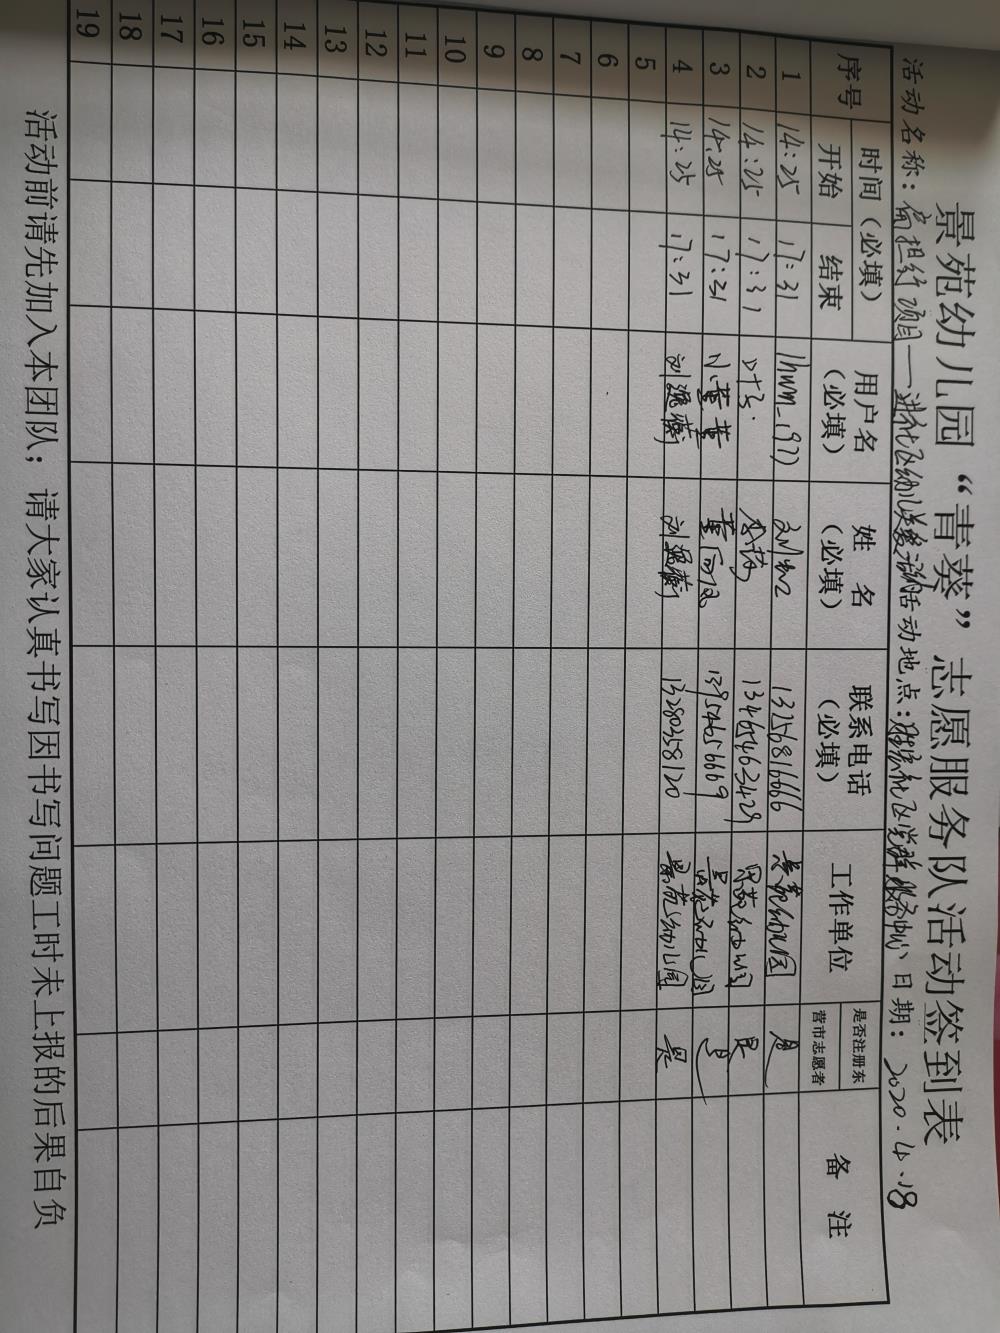 景苑幼儿园“青葵”志愿服务队活动签到表
活动名称: 项目——进社区 活动地点: 社区党群服务中心 日期: 2020.4.18
序号 时间（必填） 用户名（必填） 姓 名（必填） 联系电话（必填） 工作单位 是否注册东营市志愿者 备 注
开始 结束
1 14:25 17:31 13256816666 景苑幼儿园 是
2 14:25 17:31 13465463429 景苑幼儿园 是
3 14:25 17:31 小董董 董 13954656669 景苑幼儿园 是
4 14:25 17:31 刘逸蘅 刘逸蘅 13280358120 景苑幼儿园 是
5
6
7
8
9
10
11
12
13
14
15
16
17
18
19
活动前请先加入本团队；请大家认真书写因书写问题工时未上报的后果自负